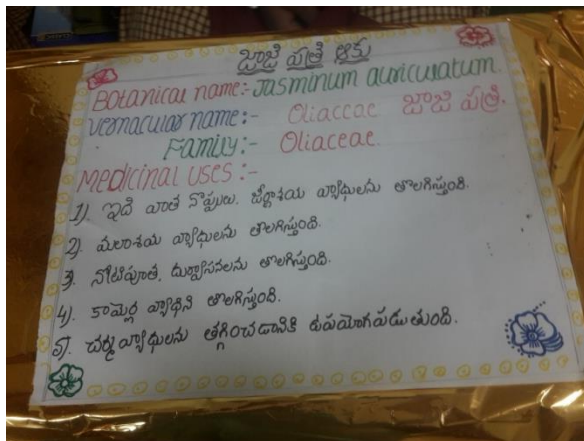 జాజి పత్రి ఆకు
Botanical name:- Jasminum auriculatum.
Vernacular name:- Oliaceae జాజి పత్రి.
Family:- Oliaceae.
Medicinal uses:-
1). ఇది వాత నొప్పులు, జీర్ణాశయ వ్యాధులను తొలగిస్తుంది.
2). మలాశయ వ్యాధులను తొలగిస్తుంది.
3). నోటిపూత, దుర్వాసనలను తొలగిస్తుంది.
4). కామెర్ల వ్యాధిని తొలగిస్తుంది.
5). చర్మ వ్యాధులను తగ్గించడానికి ఉపయోగపడుతుంది.